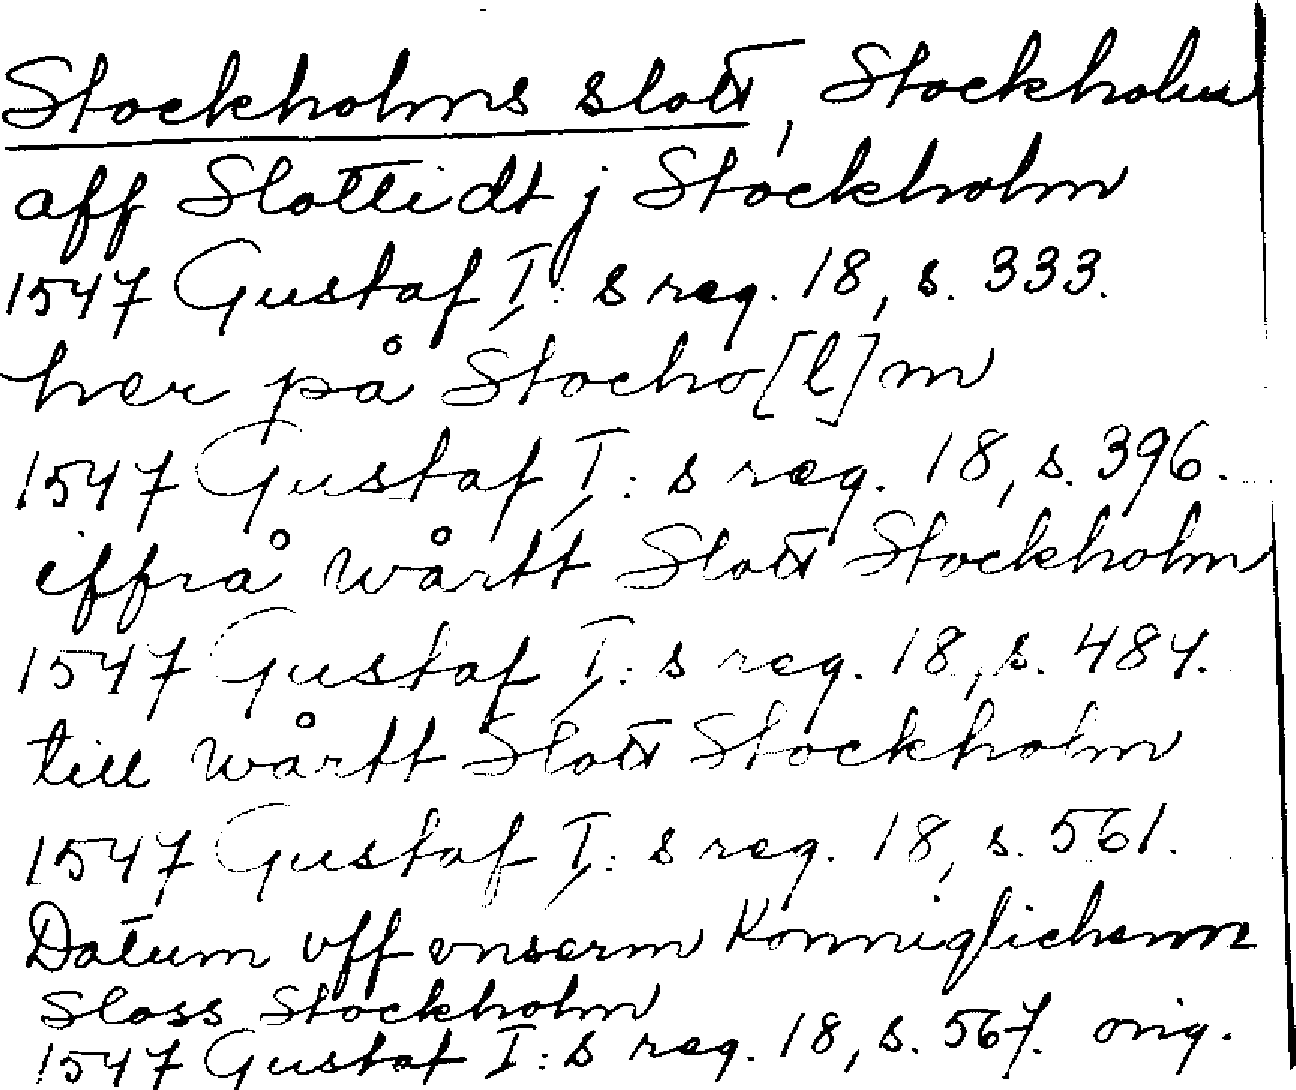 Stockholms slott, Stockholm
aff Slottidt j Stockholm
1547 Gustaf I:s reg. 18, s. 333.
her på Stocho[l]m
1547 Gustaf I:s reg. 18, s. 396.
iffrå wårtt Slott Stockholm
1547 Gustaf I:s reg. 18, s. 484.
till wårtt Slott Stockholm
1547 Gustaf I:s reg. 18, s. 561.
Datum vff vnserm Konniglichenn
Sloss Stockholm
1547 Gustaf I:s reg. 18, s. 567. orig.